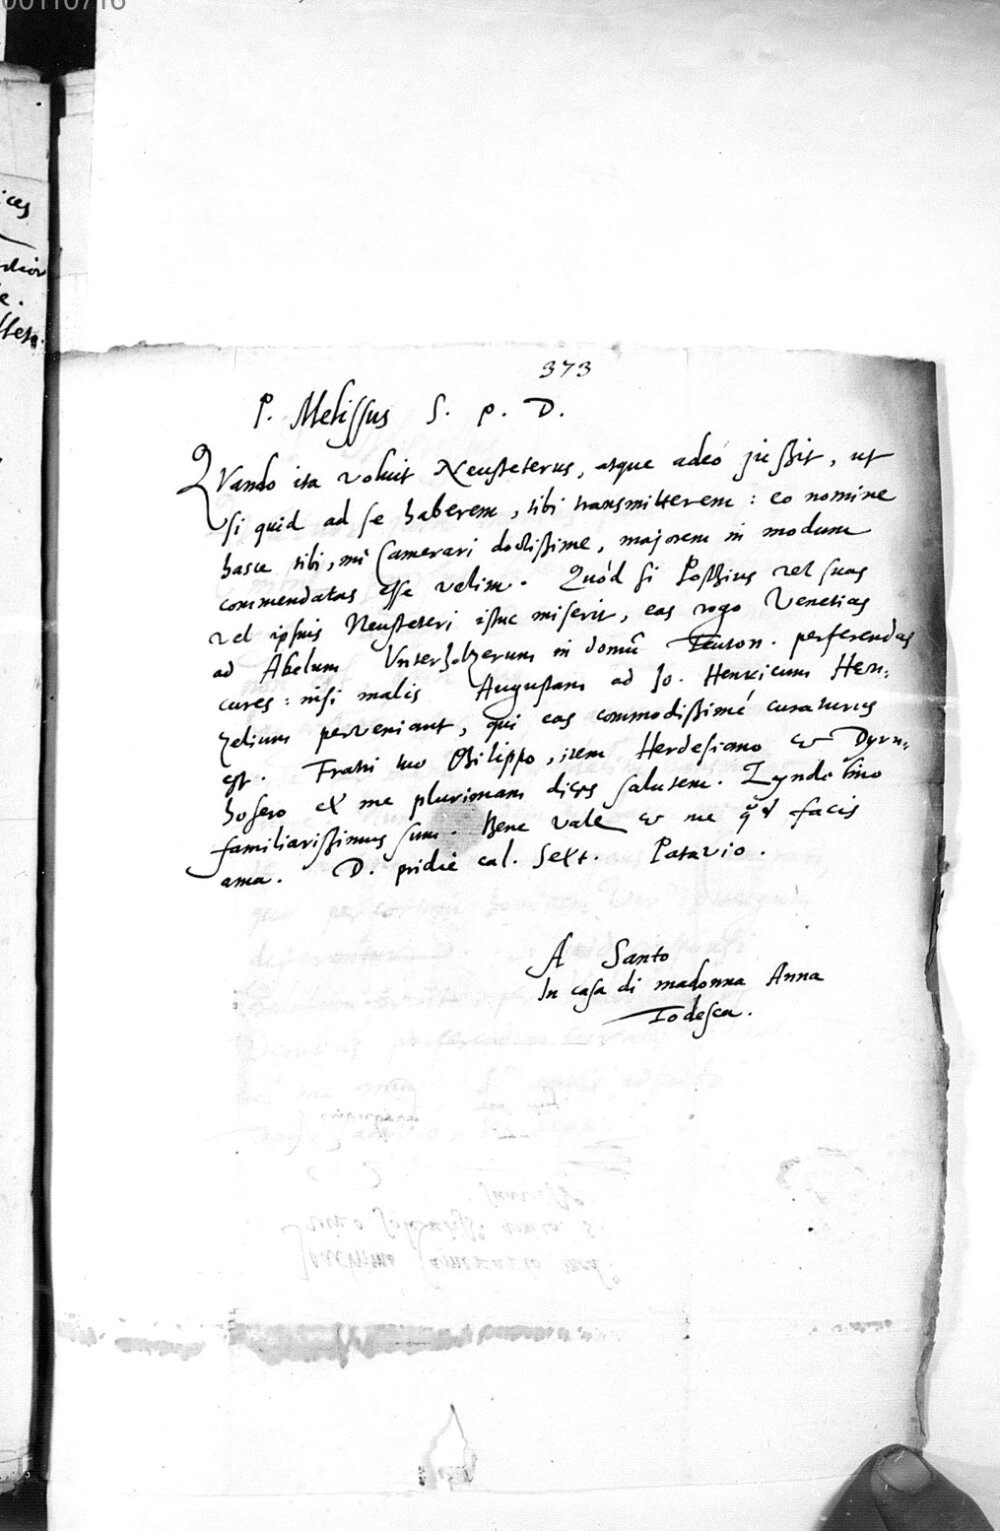 00110716
ices
373
P. Melissus S. P. D.
QVando ita voluit Neusteterus, atque adeò jußit, ut
si quid ad se haberem, tibi transmitterem : eo nomine
hasce tibi, mi Camerari doctißime, majorem in modum
commendatas esse velim. Quòd si Posthius vel suas
vel ipsius Neusteteri istuc miserit, eas rogo Venetias
ad Abelum Unterholzerum in domũ Teuton. perferendas
cures : nisi malis Augustam ad Jo. Henricum Her-
zelium perveniant, qui eas commodißimè curaturus
est. Fratri tuo Philippo, item Herdesiano & Dyrn-
hofero ex me plurimam dices salutem. Lyndesino
familiarißimus sum. Bene vale & me qd facis
ama. D. pridie cal. Sext. Patavio.
Al Santo
In casa di madonna Anna
Todesca.